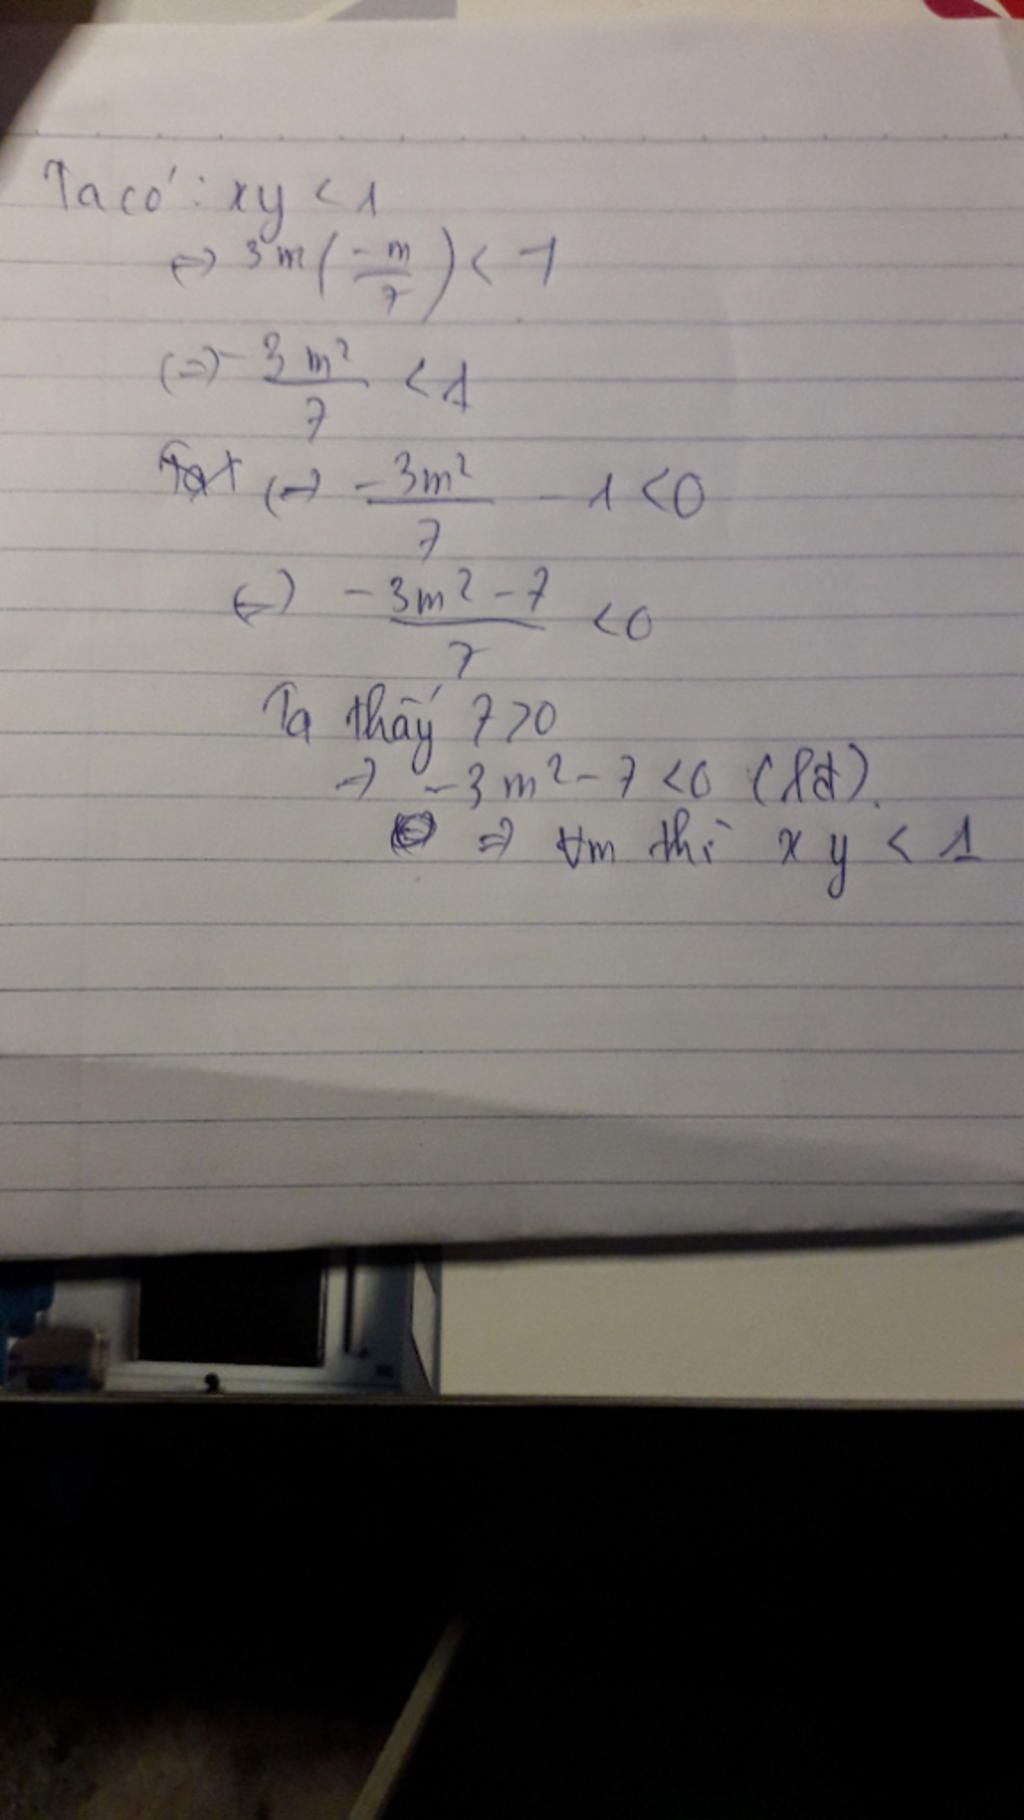 Ta có: xy < 1
⇔ 3m(-m/7) < 1
⇔ -3m²/7 < 1
⇔ -3m²/7 - 1 < 0
⇔ -3m² - 7/7 < 0
Ta thấy 7 > 0
⇒ -3m² - 7 < 0 (lđ).
⇒ ∀m thì xy < 1